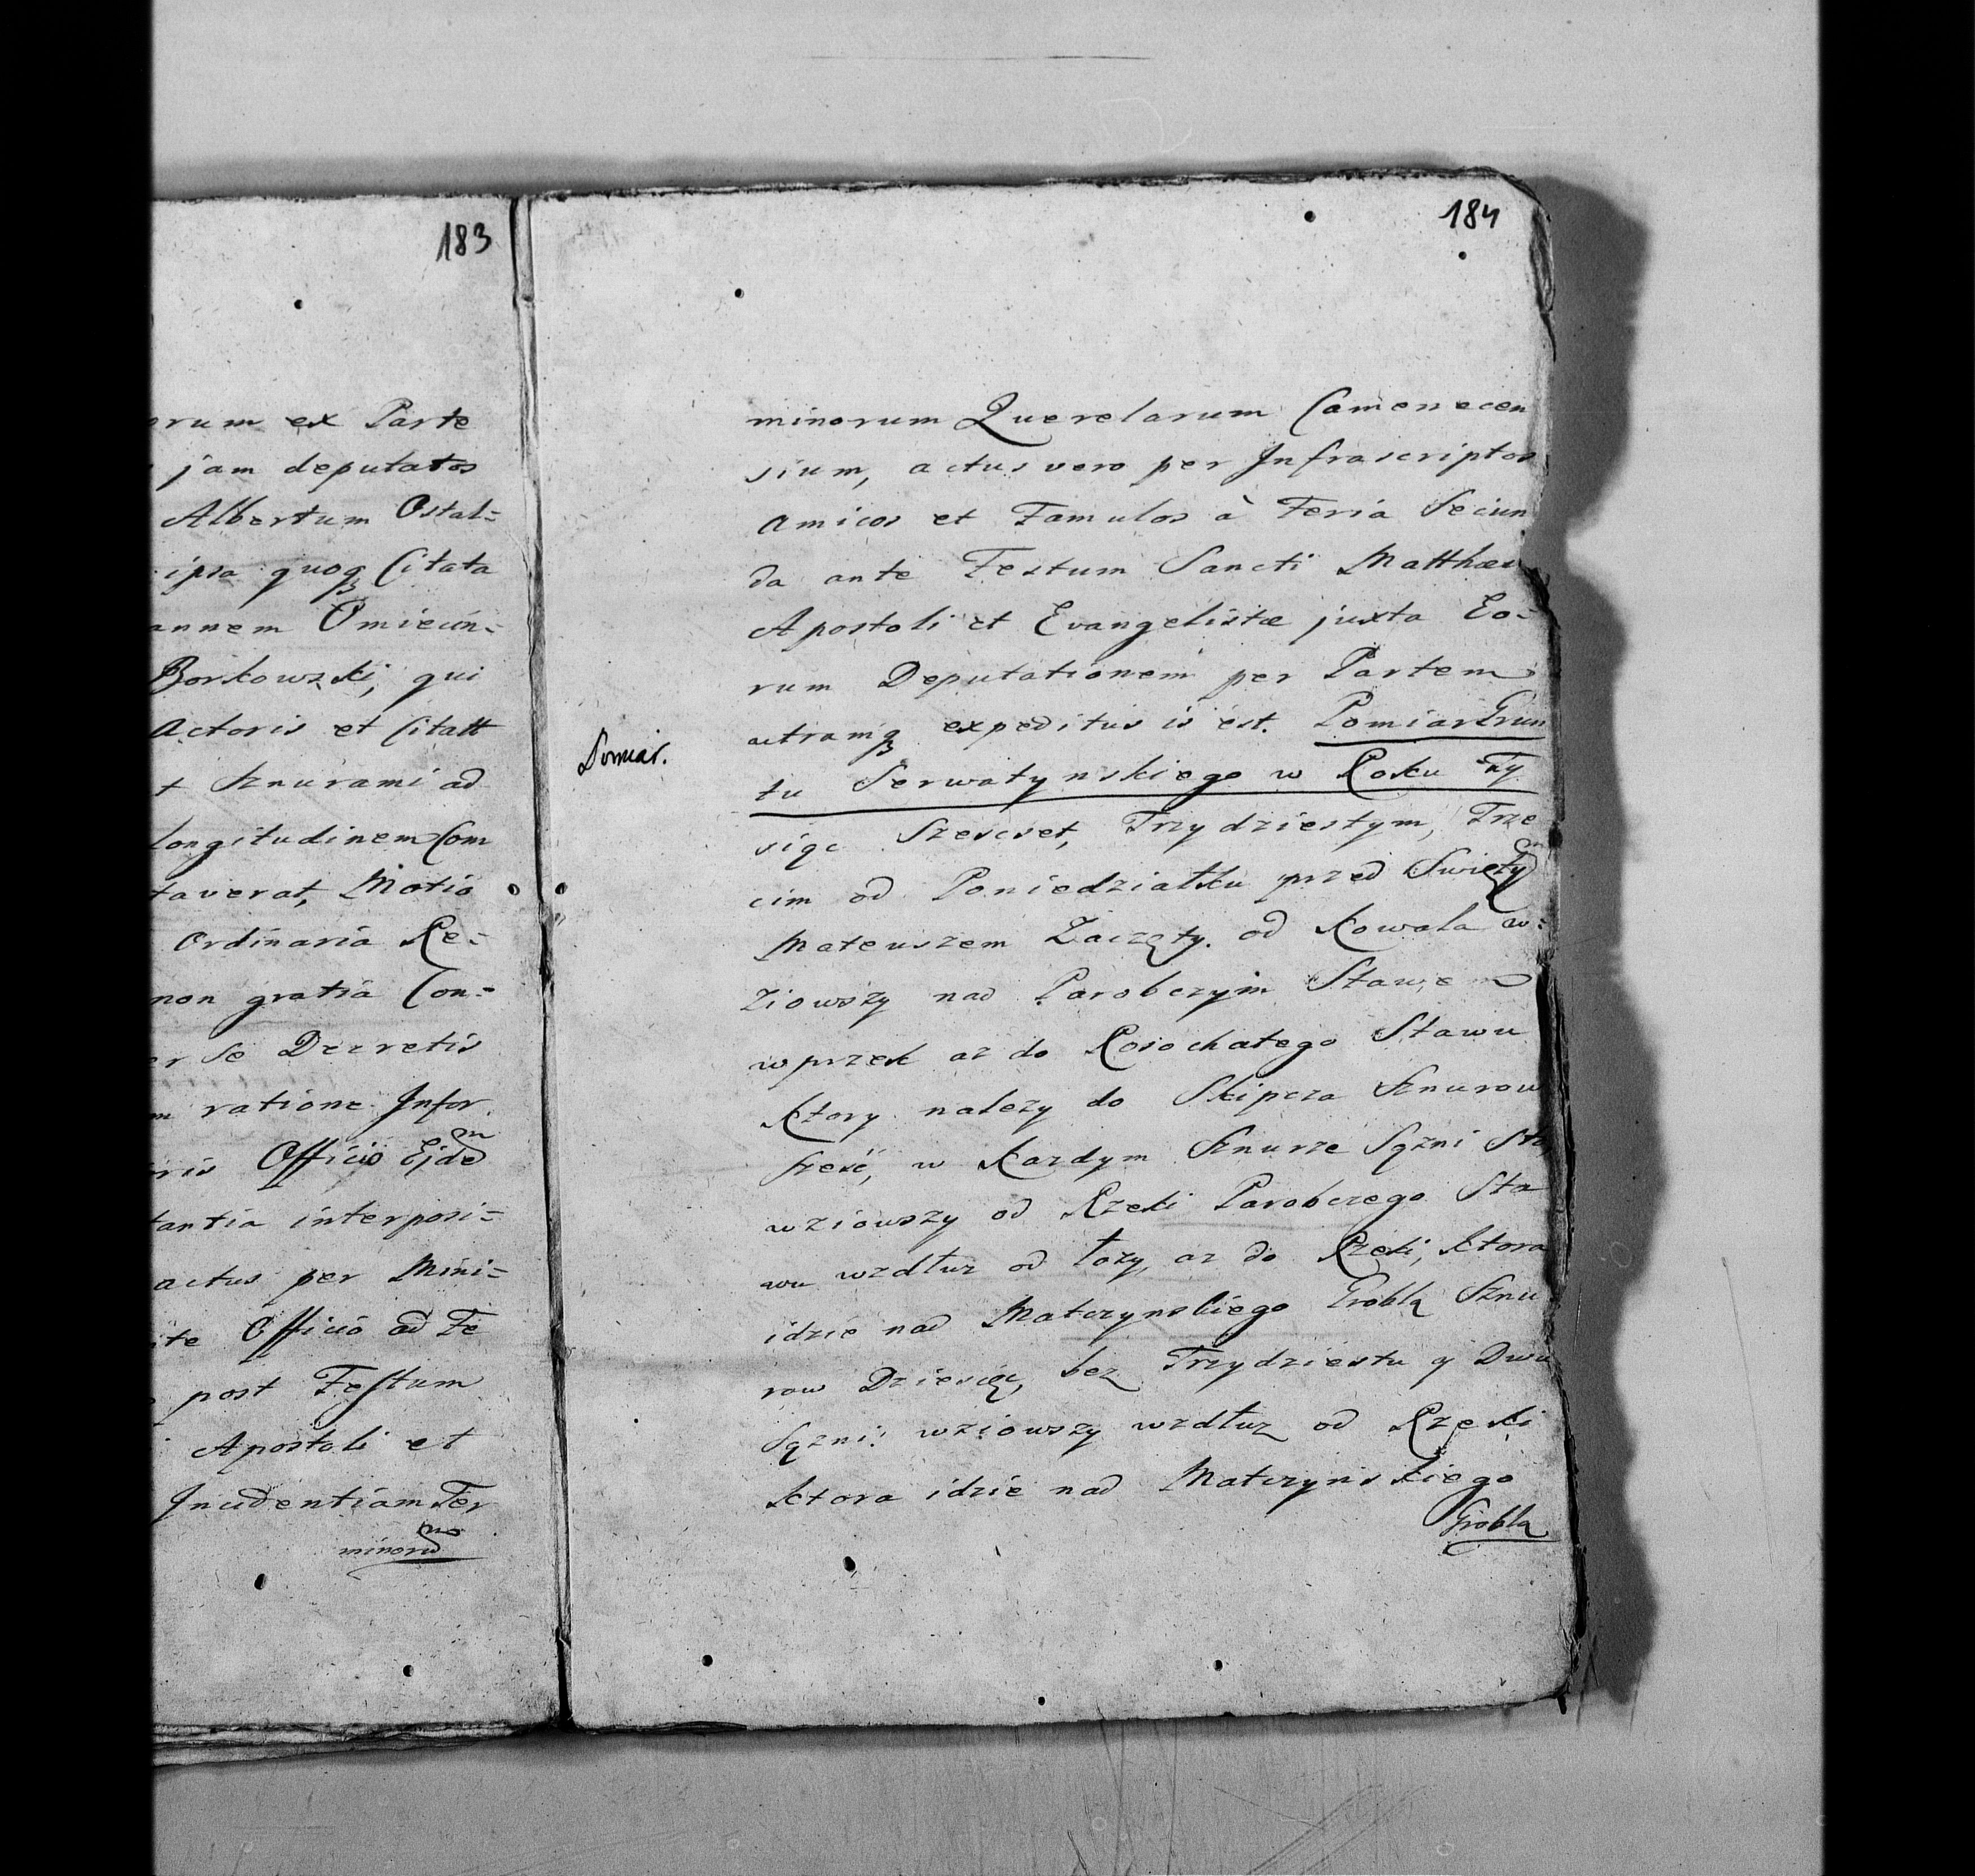 183
orum ex Parte
jam deputatos
Albertum Ostal=
ipsa quoq Citata
annem Omiecin=
Borkowski, qui
Actoris et Citatt
t Sznurami ad
longitudinem Com
taverat, Motio
Ordinaria Re=
non gratia Con=
er se Decretis
m ratione Infor
oris Officio Ejdem
tantia interposi=
actus per Mini=
ite Officio ad Fe
post Festum
Apostoli et
Incidentiam Ter
minorum
184
minorum Querelarum Camenecen
sium, actus vero per Infrascriptos
Amicos et Famulos à Feria Secun
da ante Festum Sancti Matthaei
Apostoli et Evangelistæ juxta Eo=
rum Deputationem per Partem
utramq expeditus is est. Pomiar Grun
Pomiar.
tu Serwatynskiego w Roku Ty
siąc Szescset, Trzydziestym, Trze
cim od Poniedziałku przed Swiętym
Mateuszem Zaczęty. od Kowala w=
ziowszy nad Parobczym Stawem
wprzek az do Rosochatego Stawu
Ktory nalezy do Skipcza Sznurow
szesć, w Kazdym Sznurze Sążni Sto,
wziowszy od Rzeki Parobczego Sta
wu wzdłuz od łozy, az do Rzeki, Ktora
idzie nad Matczynskiego Groblą Sznu
row Dziesięc, bez Trzydziestu y Dwu
Sążni: wziowszy wzdłuz od Rzeki
Ktora idzie nad Matczynskiego
Groblą